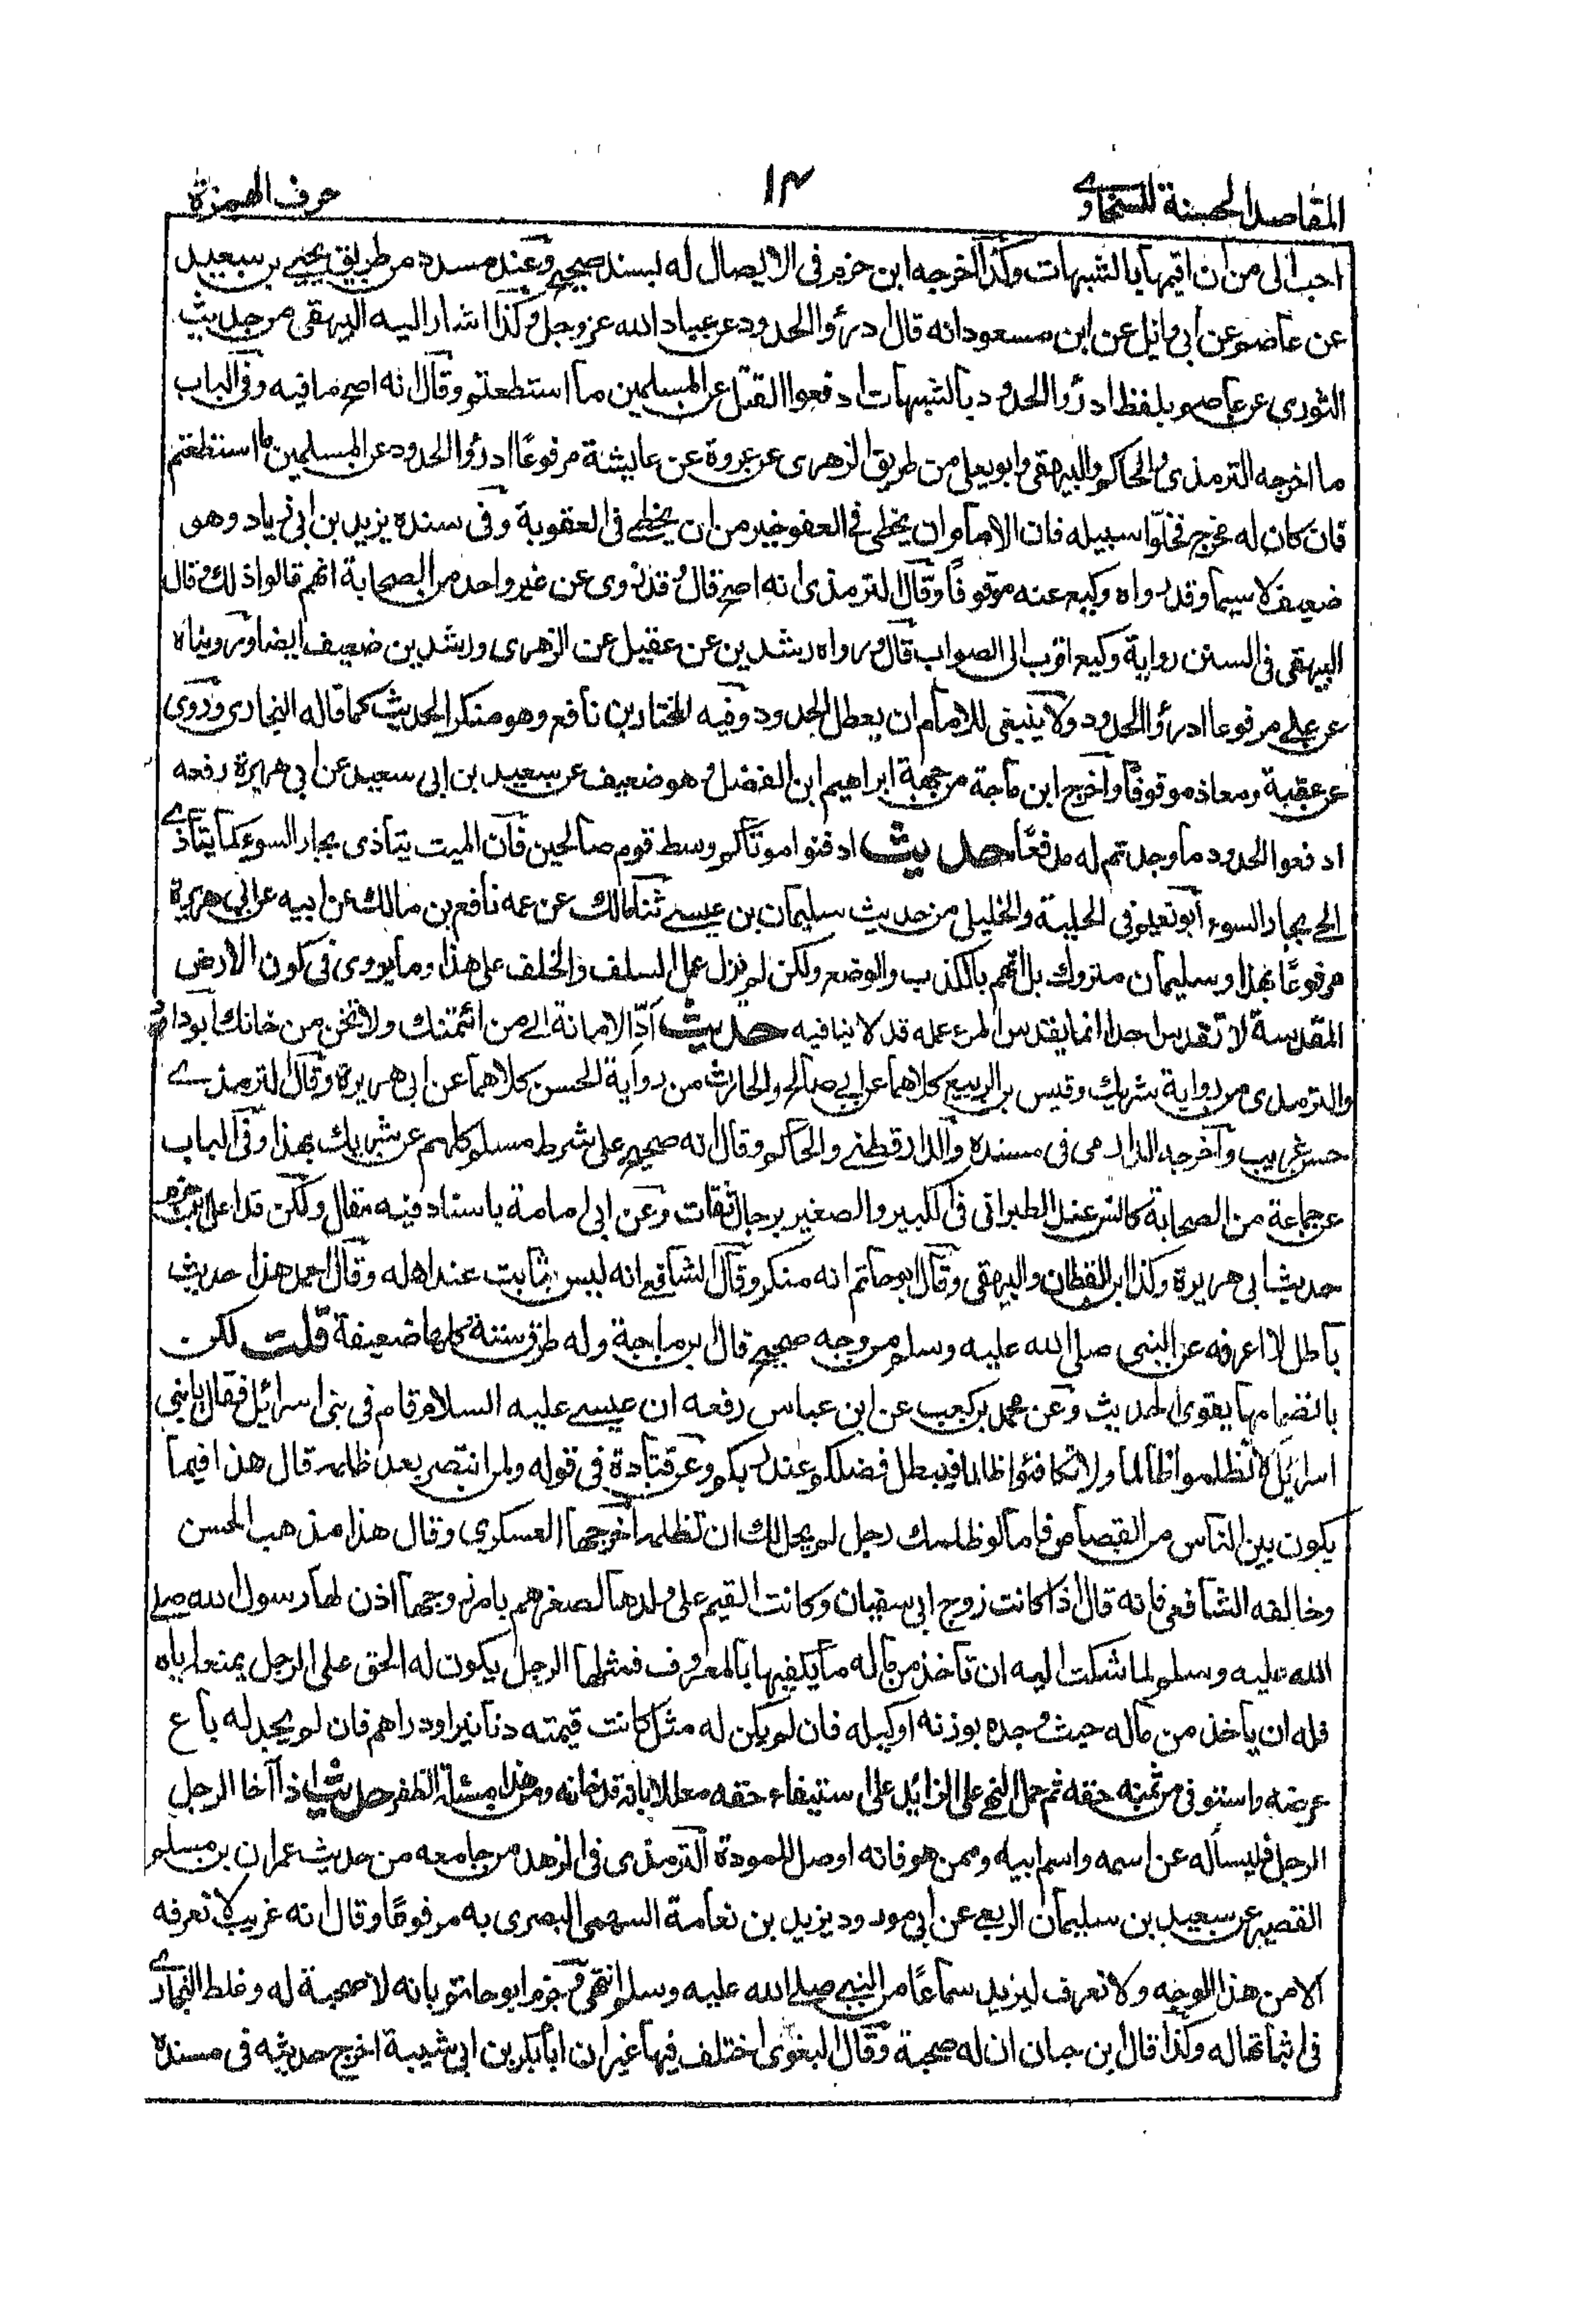 المقاصد الحسنة للسخاوے
۱۴
حرف الهمزة
احب الى من ان اقيمها بالشبهات وكذا اخرجه ابن حزم فى الايصال له بسند صحيح وعند مسدد من طريق يحيے بن سعيد
عن عاصم عن ابى وائل عن ابن مسعود انه قال ادرؤا الحدود عن عباد الله عز وجل وكذا اشار اليه البيهقى من حديث
الثورى عن عاصم بلفظ ادرؤا الحدود بالشبهات ادفعوا القتل عن المسلمين ما استطعتم وقال انه اصح ما فيه وفى الباب
ما اخرجه الترمذى والحاكم والبيهقى وابو يعلى من طريق الزهرى عن عروة عن عايشة مرفوعًا ادرؤا الحدود عن المسلمين ما استطعتم
فان كان له مخرج فخلّوا سبيله فان الامام ان يخطى فى العفو خير من ان يخطے فى العقوبة وفى سنده يزيد بن ابى زياد وهو
ضعيف لا سيما وقد رواه وكيع عنه موقوفًا وقال الترمذى انه اصح قال وقد روى عن غير واحد من الصحابة انهم قالوا ذلك وقال
البيهقى فى السنن رواية وكيع اقرب الى الصواب قال ورواه رشدين عن عقيل عن الزهرى ورشدين ضعيف ايضا ورويناه
عن على مرفوعا ادرؤا الحدود ولا ينبغى للامام ان يعطل الحدود وفيه المختار بن نافع وهو منكر الحديث كما قاله البخارى وروى
عن عقبة ومعاذ موقوفًا واخرج ابن ماجة من جهة ابراهيم ابن الفضل وهو ضعيف عن سعيد بن ابى سعيد عن ابى هريرة رفعه
ادفعوا الحدود ما وجدتم له مدفعًا حديث ادفنوا موتاكم وسط قوم صالحين فان الميت يتأذى بجار السوء كما يتأذے
الحى بجار السوء ابو نعيم فى الحلية والخليلى من حديث سليمان بن عيسے ثنا مالك عن عمه نافع بن مالك عن ابيه عن ابى هريرة
مرفوعًا بهذا وسليمان متروك بل اتهم بالكذب والوضع ولكن لم يزل عمل السلف والخلف على هذا وما يروى فى كون الارض
المقدسة لا تقدس احدا انما يقدس المرء عمله قد لا ينافيه حديث اَدِّ الامانة الے من ائتمنك ولا تخن من خانك ابو داود
والترمذى من رواية شريك وقيس بن الربيع كلاهما عن ابى صالح والحارث من رواية الحسن كلاهما عن ابى هريرة وقال الترمذے
حسن غريب واخرجه الدارمى فى مسنده والدارقطنے والحاكم وقال انه صحيح على شرط مسلم كلهم عن شريك بهذا وفى الباب
عن جماعة من الصحابة كانس عند الطبرانى فى الكبير والصغير برجال ثقات وعن ابى امامة باسناد فيه مقال ولكن قد اعل ابن حزم
حديث ابى هريرة وكذا ابن القطان والبيهقى وقال ابو حاتم انه منكر وقال الشافعے انه ليس بثابت عند اهله وقال احمد هذا حديث
باطل لا اعرفه عن النبى صلى الله عليه وسلم من وجه صحيح قال ابن ماجة وله طرق ستة كلها ضعيفة قلت لكن
بانضمامها يقوى الحديث وعن محمد بن كعب عن ابن عباس رفعه ان عيسے عليه السلام قام فى بنى اسرائيل فقال يا بنى
اسرائيل لا تظلموا ظالما ولا تكافئوا ظالما فيبطل فضلكم عند ربكم وعن قتادة فى قوله ولمن انتصر بعد ظلمه قال هذا فيما
يكون بين الناس من القصاص فاما لو ظلمك رجل لم يحل لك ان تظلمه اخرجها العسكرى وقال هذا مذهب الحسن
وخالفه الشافعى فانه قال اذا كانت زوج ابى سفيان وكانت القيم على ولدها لصغرهم بامر زوجها اذن لها رسول الله صلے
الله عليه وسلم لما شكت اليه ان تأخذ من ماله ما يكفيها بالمعروف فمثلها الرجل يكون له الحق على الرجل يمنعه اياه
فله ان يأخذ من ماله حيث وجده بوزنه او كيله فان لم يكن له مثل كانت قيمته دنانير او دراهم فان لم يجد له باع
عرضه واستوفى من ثمنه حقه ثم حمل النهے على الزائد على استيفاء حقه معللا بانه قد خانه ومن هذا مسئلة الظفر حديث اذا آخا الرجل
الرجل فليسأله عن اسمه واسم ابيه وممن هو فانه اوصل للمودة الترمذى فى الزهد من جامعه من حديث عمران بن مسلم
القصير عن سعيد بن سليمان الربعے عن ابى مودود يزيد بن نعامة السهمى البصرى به مرفوعًا وقال انه غريب لا نعرفه
الا من هذا الوجه ولا نعرف ليزيد سماعًا من النبے صلے الله عليه وسلم انتهى وجزم ابو حاتم بانه لا صحبة له وغلط البخارے
فى اثباتها له وكذا قال ابن حبان ان له صحبة وقال البغوى اختلف فيها غير ان ابا بكر بن ابى شيبة اخرج حديثه فى مسنده